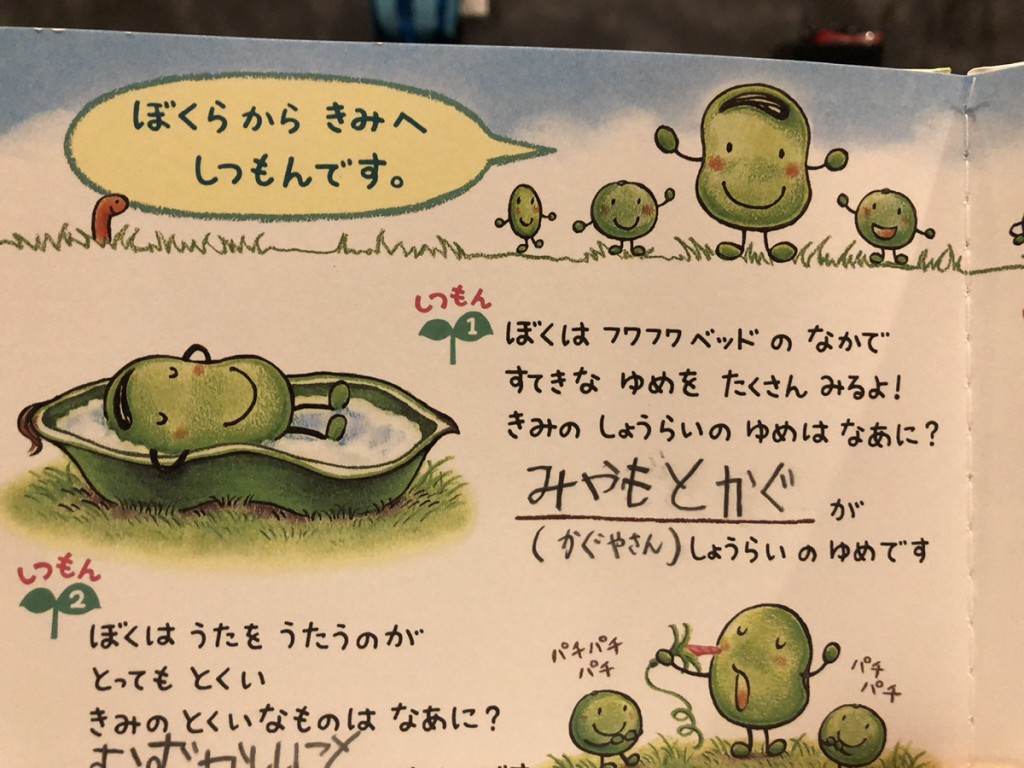 ぼくらから きみへ
しつもんです。
しつもん
1
ぼくは フワフワ ベッド の なかで
すてきな ゆめを たくさん みるよ!
きみの しょうらいの ゆめは なあに?
みやもとかぐ が
(かぐやさん) しょうらい の ゆめです
しつもん
2
ぼくは うたを うたうのが
とっても とくい
きみの とくいなものは なあに?
パチパチ
パチ
パチ
パチ